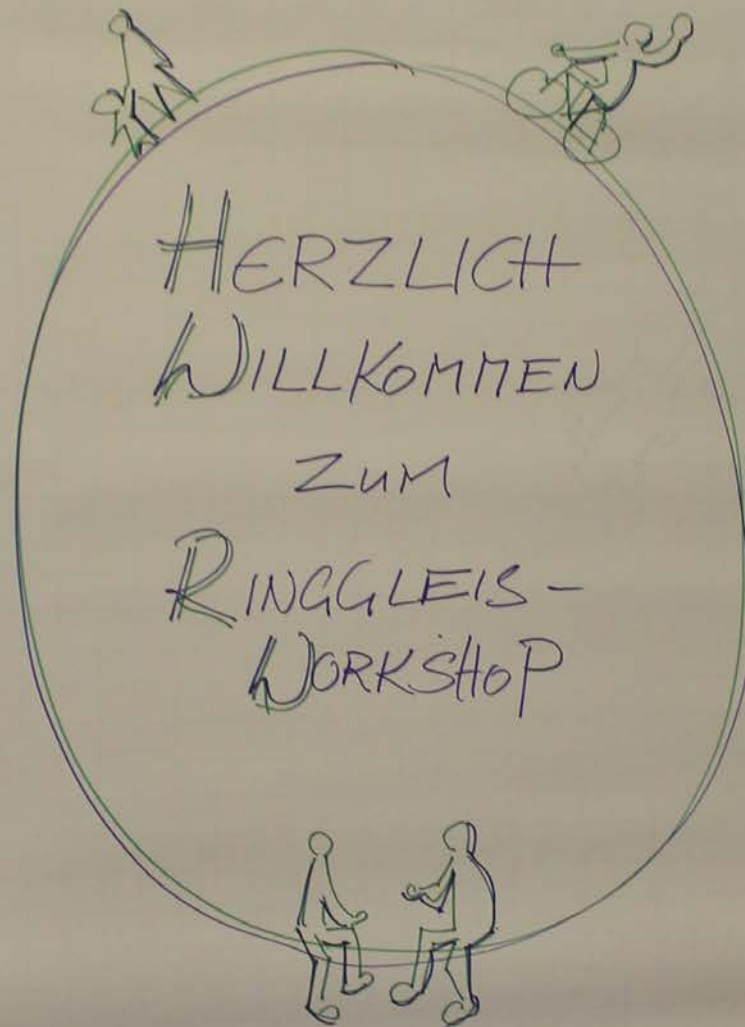 HERZLICH
WILLKOMMEN
ZUM
RINGGLEIS-
WORKSHOP